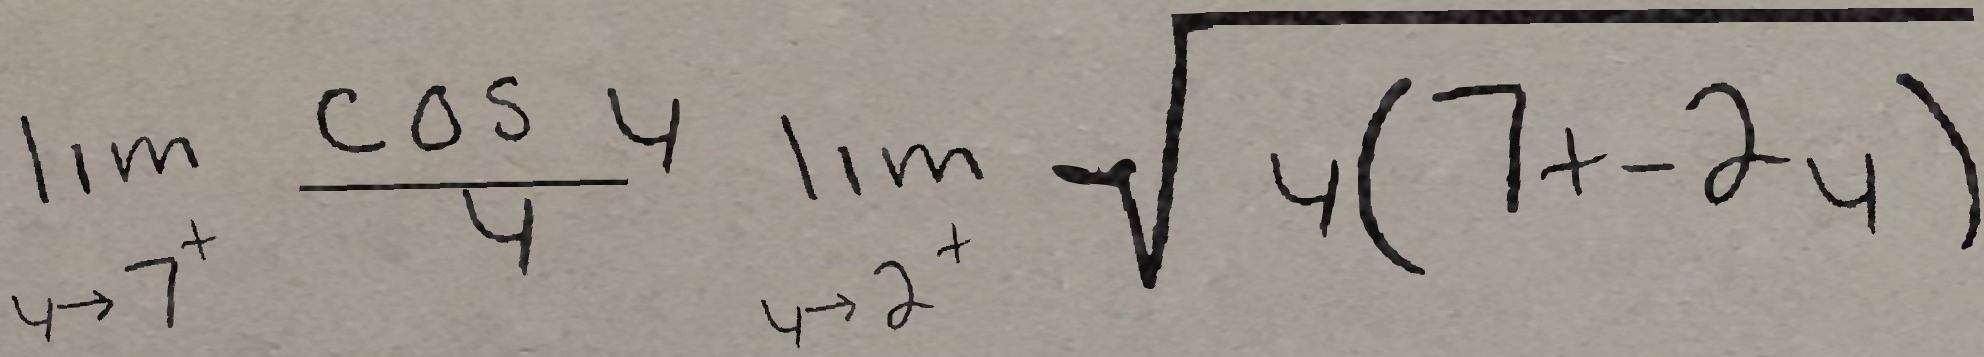 \lim_{y \to 7^+} \frac{\cos y}{y} \lim_{y \to 2^+} \sqrt{y(7+-2y)}